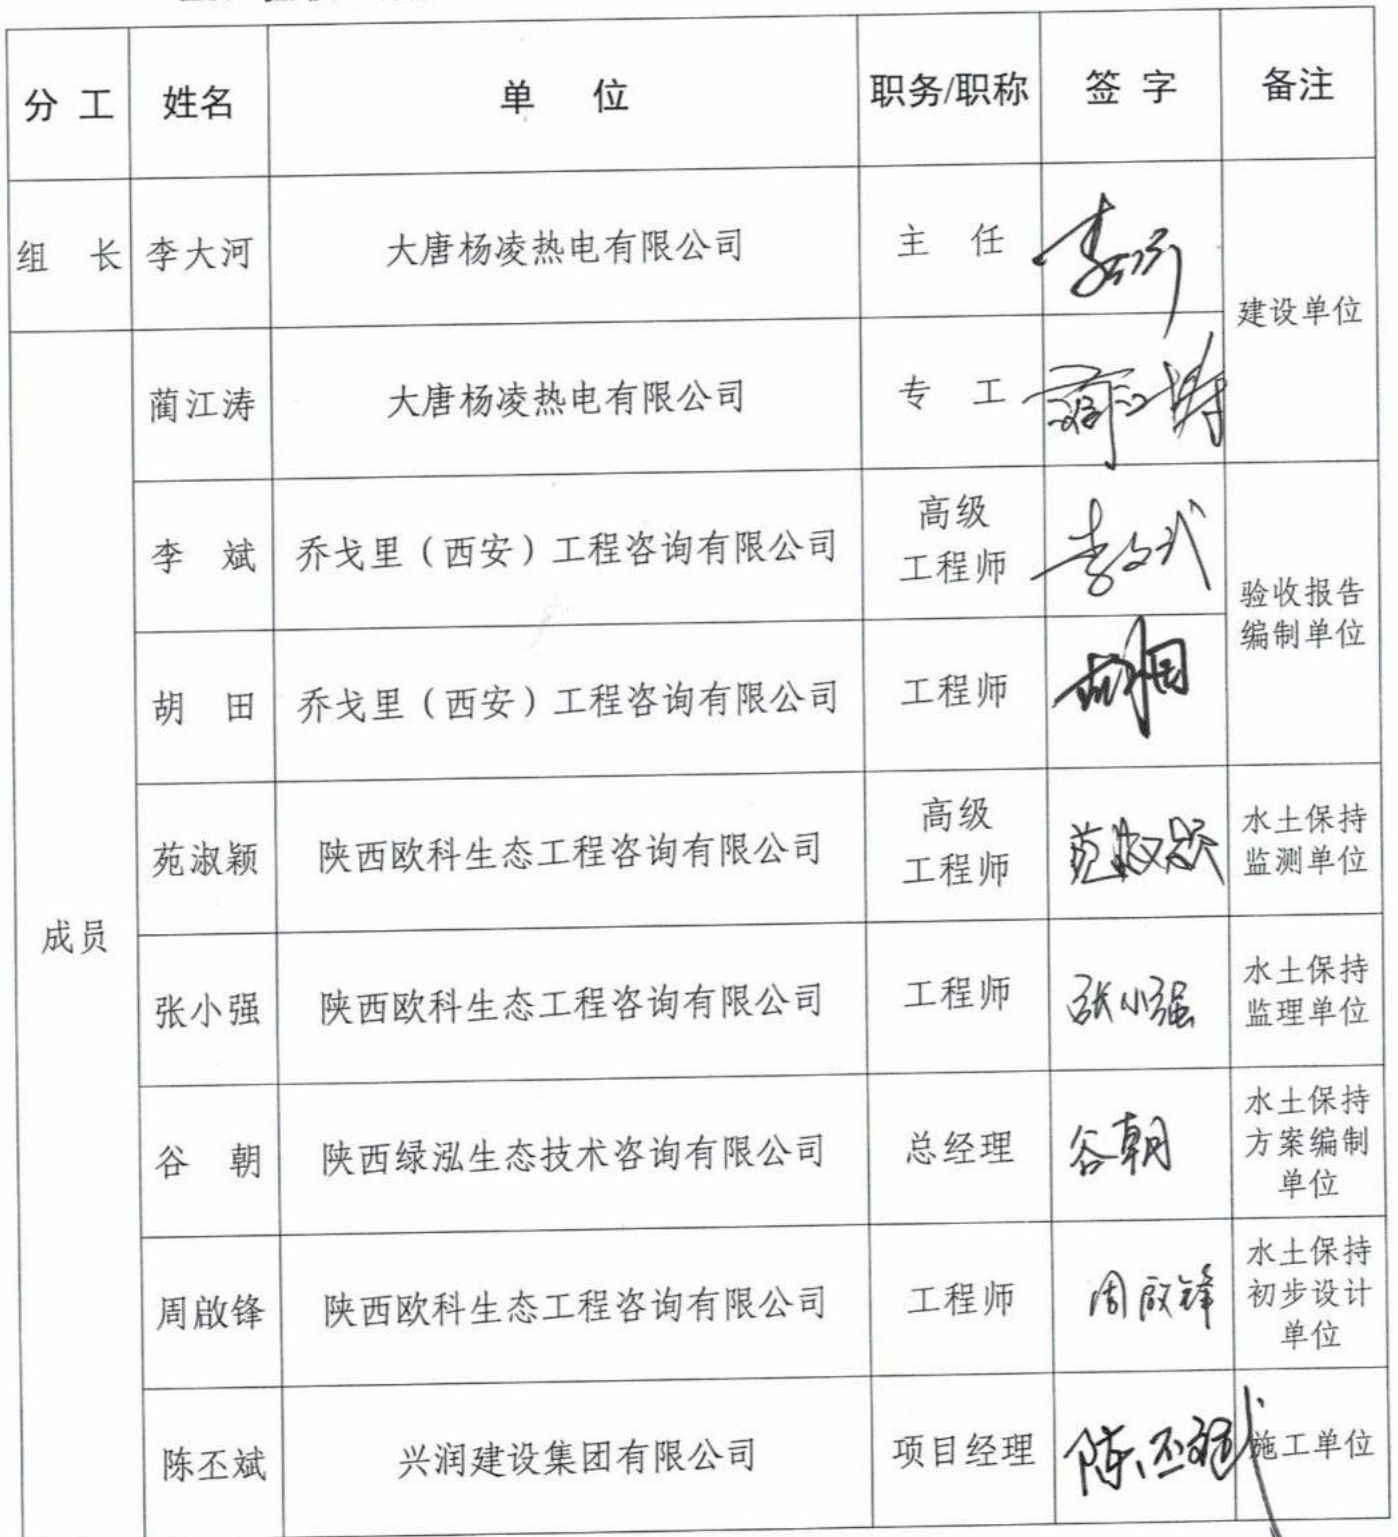 分 工 姓名 单 位 职务/职称 签 字 备注
组 长 李大河 大唐杨凌热电有限公司 主 任 李大河
建设单位
蔺江涛 大唐杨凌热电有限公司 专 工 蔺江涛
李 斌 乔戈里（西安）工程咨询有限公司 高级
工程师 李斌
验收报告
编制单位
胡 田 乔戈里（西安）工程咨询有限公司 工程师 胡田
成员
苑淑颖 陕西欧科生态工程咨询有限公司 高级
工程师 苑淑颖 水土保持
监测单位
张小强 陕西欧科生态工程咨询有限公司 工程师 张小强 水土保持
监理单位
谷 朝 陕西绿泓生态技术咨询有限公司 总经理 谷朝 水土保持
方案编制
单位
周啟锋 陕西欧科生态工程咨询有限公司 工程师 周啟锋 水土保持
初步设计
单位
陈丕斌 兴润建设集团有限公司 项目经理 陈丕斌 施工单位